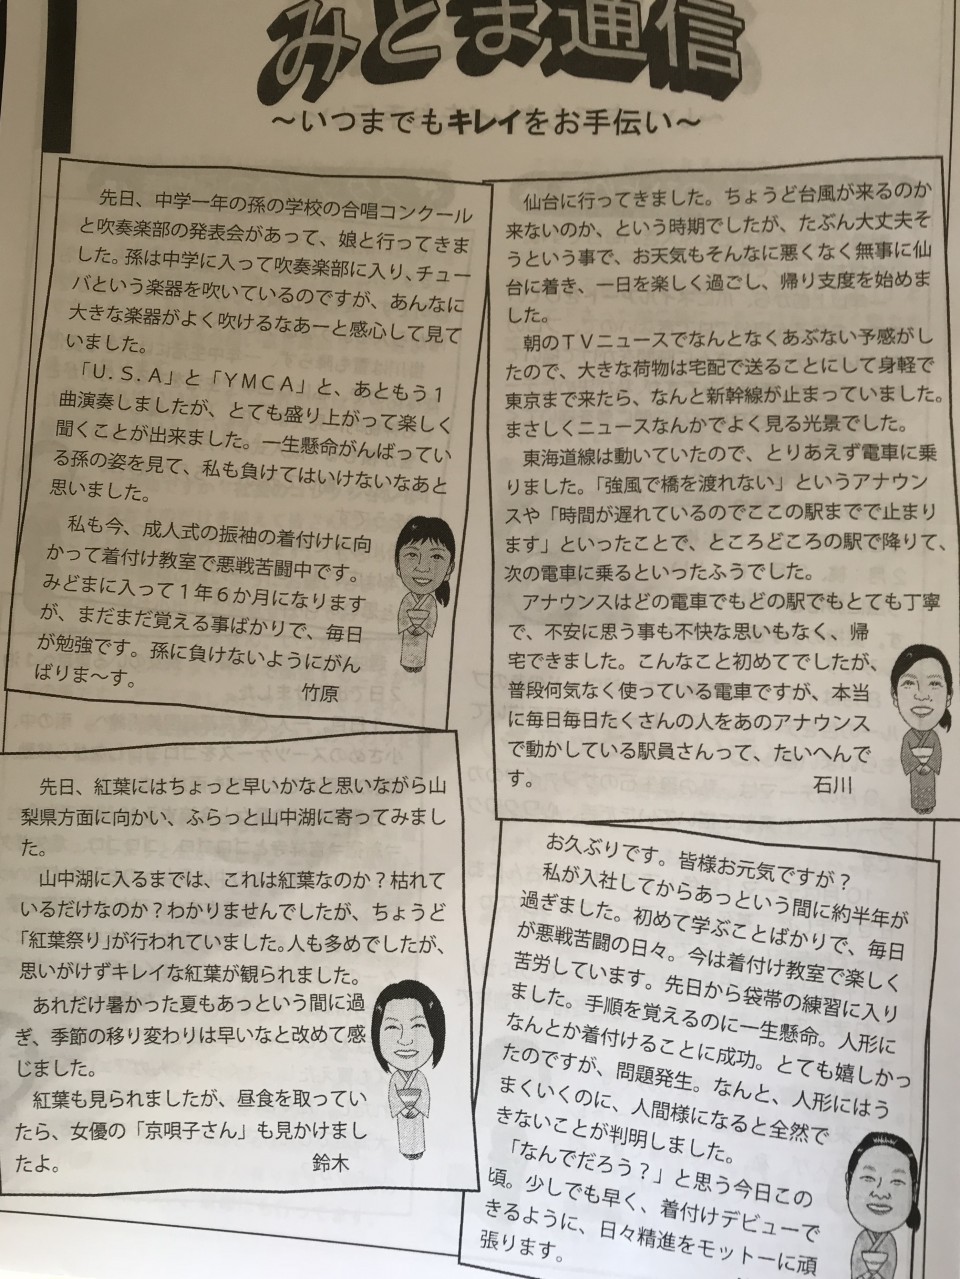 みどま通信
～いつまでもキレイをお手伝い～
先日、中学一年の孫の学校の合唱コンクール
と吹奏楽部の発表会があって、娘と行ってきま
した。孫は中学に入って吹奏楽部に入り、チュー
バという楽器を吹いているのですが、あんなに
大きな楽器がよく吹けるなあーと感心して見て
いました。
「U.S.A」と「YMCA」と、あともう１
曲演奏しましたが、とても盛り上がって楽しく
聞くことが出来ました。一生懸命がんばってい
る孫の姿を見て、私も負けてはいけないなあと
思いました。
私も今、成人式の振袖の着付けに向
かって着付け教室で悪戦苦闘中です。
みどまに入って１年６か月になります
が、まだまだ覚える事ばかりで、毎日
が勉強です。孫に負けないようにがん
ばりま～す。
竹原
仙台に行ってきました。ちょうど台風が来るのか
来ないのか、という時期でしたが、たぶん大丈夫そ
うという事で、お天気もそんなに悪くなく無事に仙
台に着き、一日を楽しく過ごし、帰り支度を始めま
した。
朝のＴＶニュースでなんとなくあぶない予感がし
たので、大きな荷物は宅配で送ることにして身軽で
東京まで来たら、なんと新幹線が止まっていました。
まさしくニュースなんかでよく見る光景でした。
東海道線は動いていたので、とりあえず電車に乗
りました。「強風で橋を渡れない」というアナウン
スや「時間が遅れているのでここの駅までで止まり
ます」といったことで、ところどころの駅で降りて、
次の電車に乗るといったふうでした。
アナウンスはどの電車でもどの駅でもとても丁寧
で、不安に思う事も不快な思いもなく、帰
宅できました。こんなこと初めてでしたが、
普段何気なく使っている電車ですが、本当
に毎日毎日たくさんの人をあのアナウンス
で動かしている駅員さんって、たいへんで
す。
石川
先日、紅葉にはちょっと早いかなと思いながら山
梨県方面に向かい、ふらっと山中湖に寄ってみまし
た。
山中湖に入るまでは、これは紅葉なのか？枯れて
いるだけなのか？わかりませんでしたが、ちょうど
「紅葉祭り」が行われていました。人も多めでしたが、
思いがけずキレイな紅葉が観られました。
あれだけ暑かった夏もあっという間に過
ぎ、季節の移り変わりは早いなと改めて感
じました。
紅葉も見られましたが、昼食を取ってい
たら、女優の「京唄子さん」も見かけまし
たよ。
鈴木
お久ぶりです。皆様お元気ですが？
私が入社してからあっという間に約半年が
過ぎました。初めて学ぶことばかりで、毎日
が悪戦苦闘の日々。今は着付け教室で楽しく
苦労しています。先日から袋帯の練習に入り
ました。手順を覚えるのに一生懸命。人形に
なんとか着付けることに成功。とても嬉しかっ
たのですが、問題発生。なんと、人形にはう
まくいくのに、人間様になると全然で
きないことが判明しました。
「なんでだろう？」と思う今日この
頃。少しでも早く、着付けデビューで
きるように、日々精進をモットーに頑
張ります。